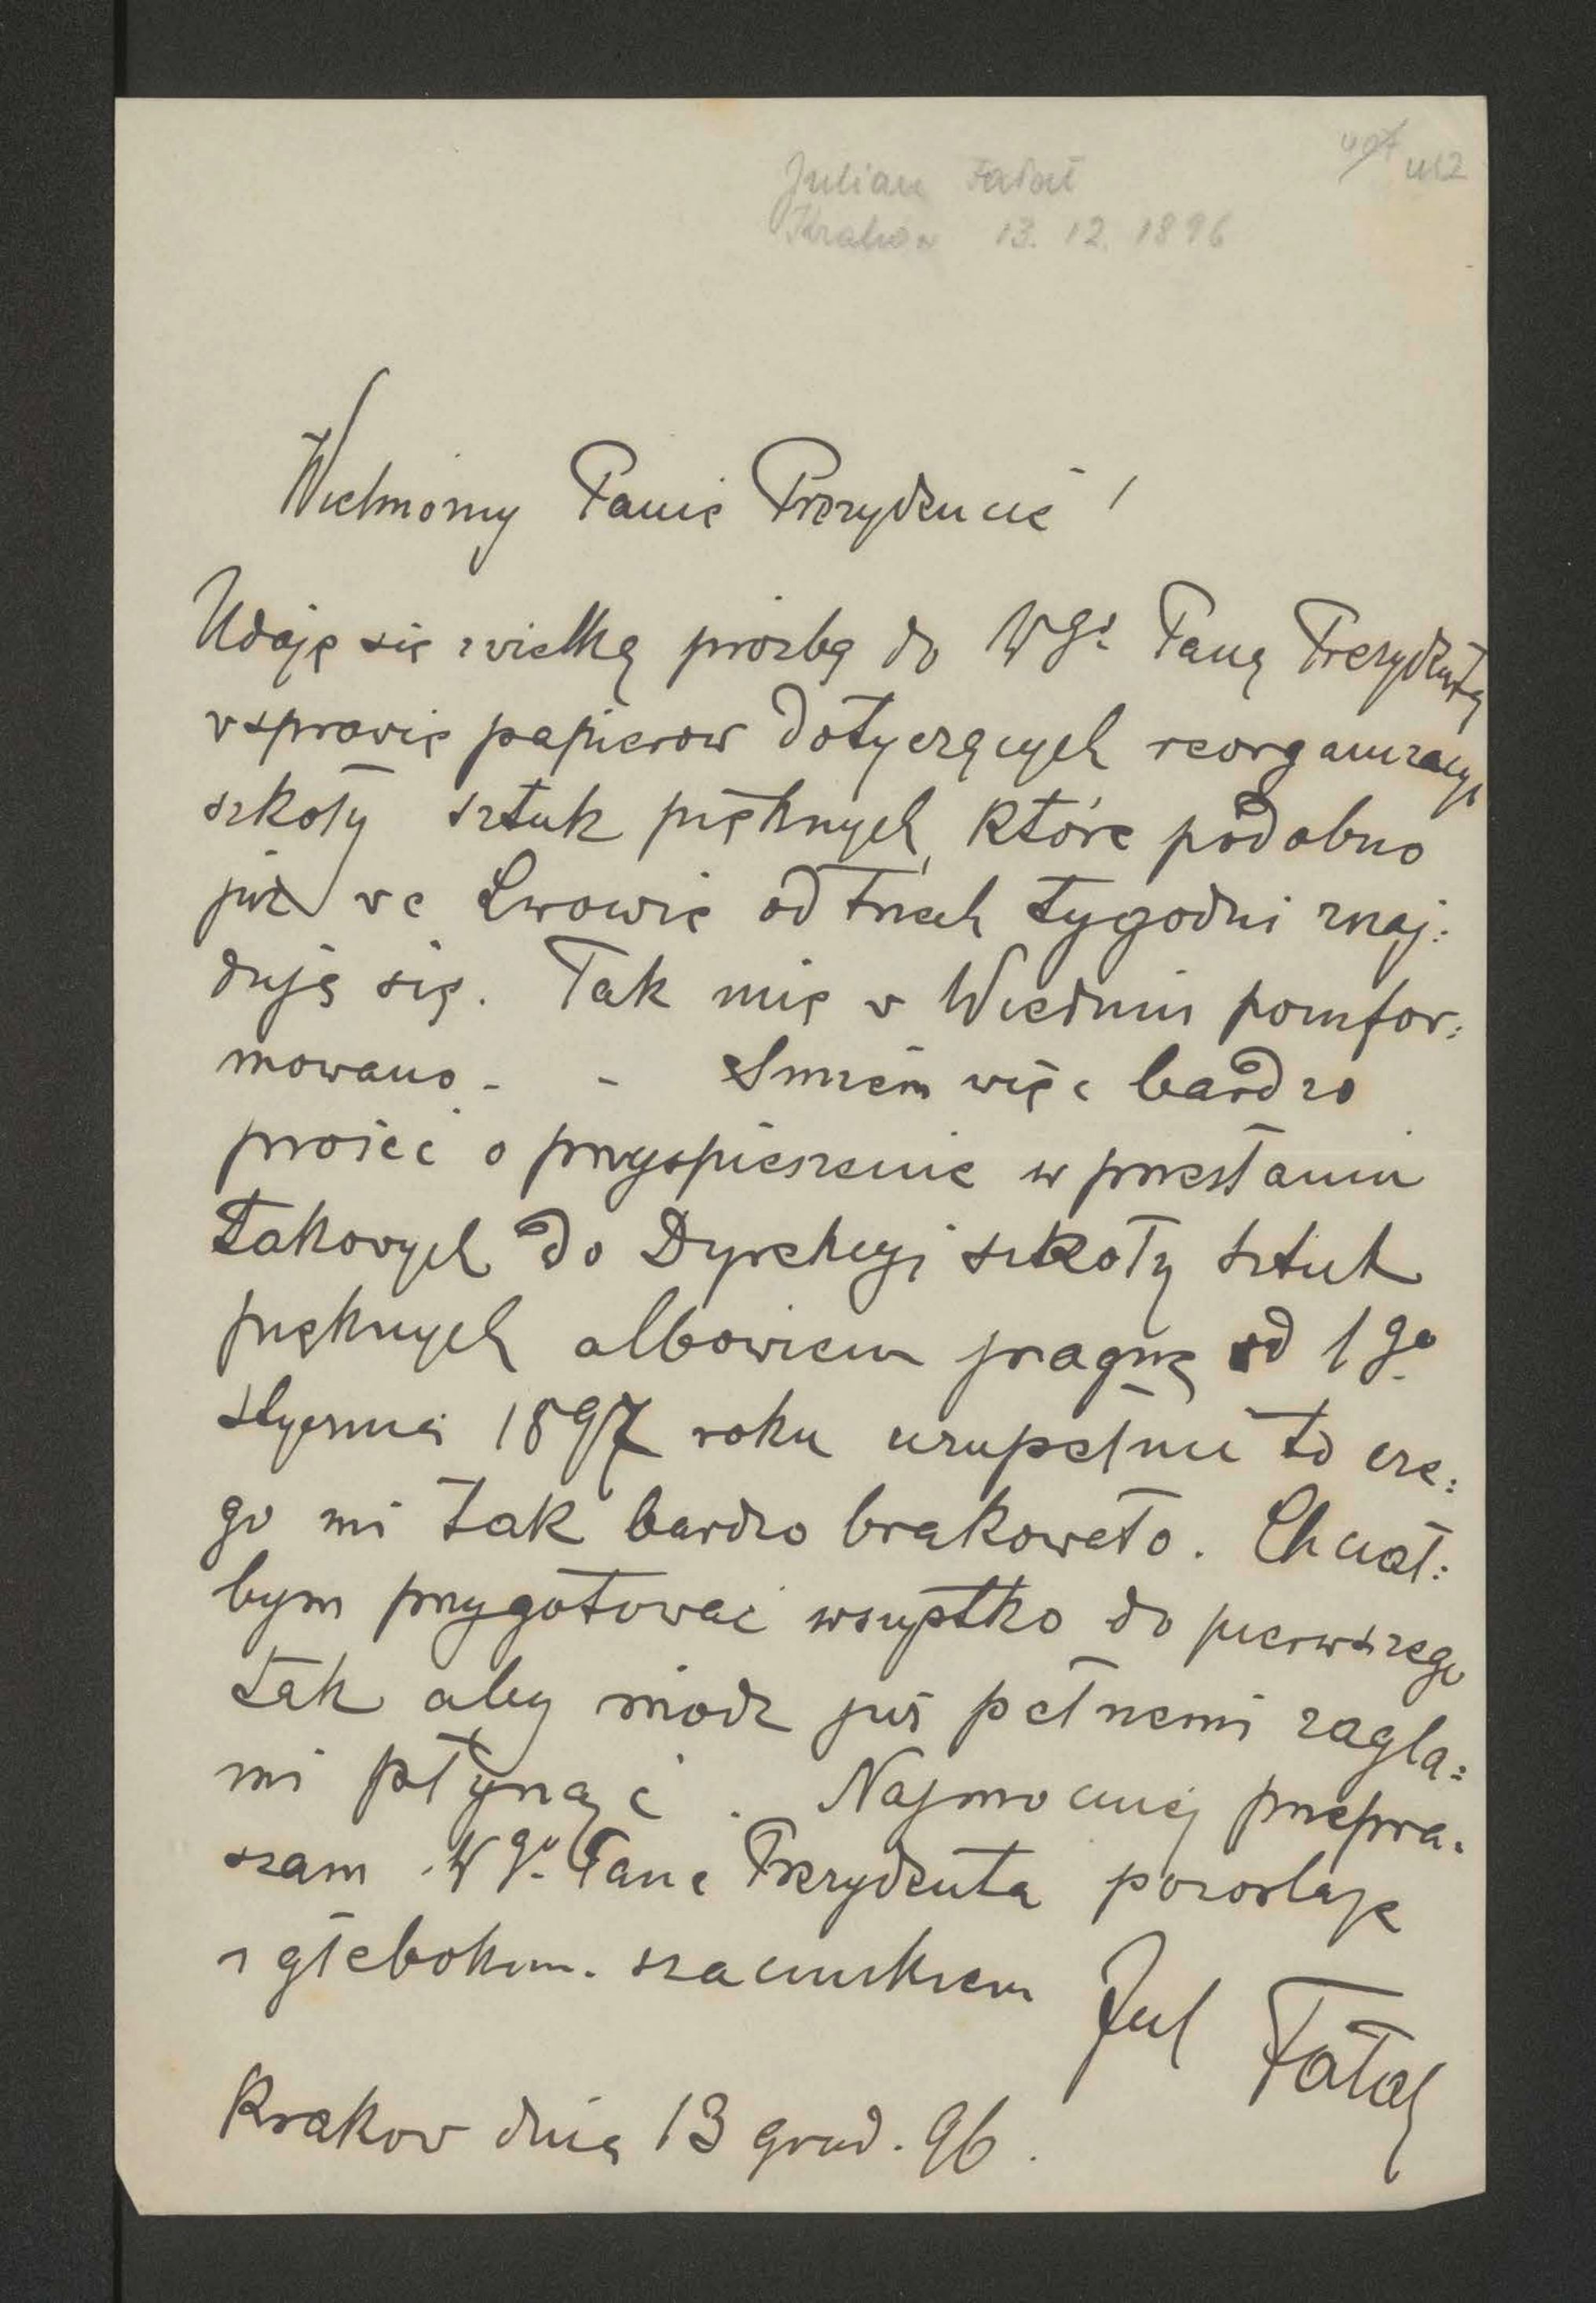 Julian Fałat
Kraków 13. 12. 1896
Wielmożny Panie Prezydencie !
Udaję się z wielką prośbą do Wgo Pana Prezydenta
w sprawie papierow dotyczących reorganizacyi
szkoły sztuk pięknych, które podobno
już we Lwowie od trzech tygodni znaj:
dują się. Tak mię w Wiedniu poinfor:
mowano - - Smiem więc bardzo
prosić o przyspieszenie w przesłaniu
takowych do Dyrekcyi szkoły sztuk
pięknych albowiem pragnę od 1go
stycznia 1897 roku uzupełnić to cze:
go mi tak bardzo brakowało. Chciał:
bym przygotować wszystko do pierwszego
tak aby módz już pełnemi żagla:
mi płynąć . Najmocniej przepra:
szam Wgo Pana Prezydenta pozostaję
z głębokim szacunkiem Jul Fałat
Krakow dnia 13 grud. 96.